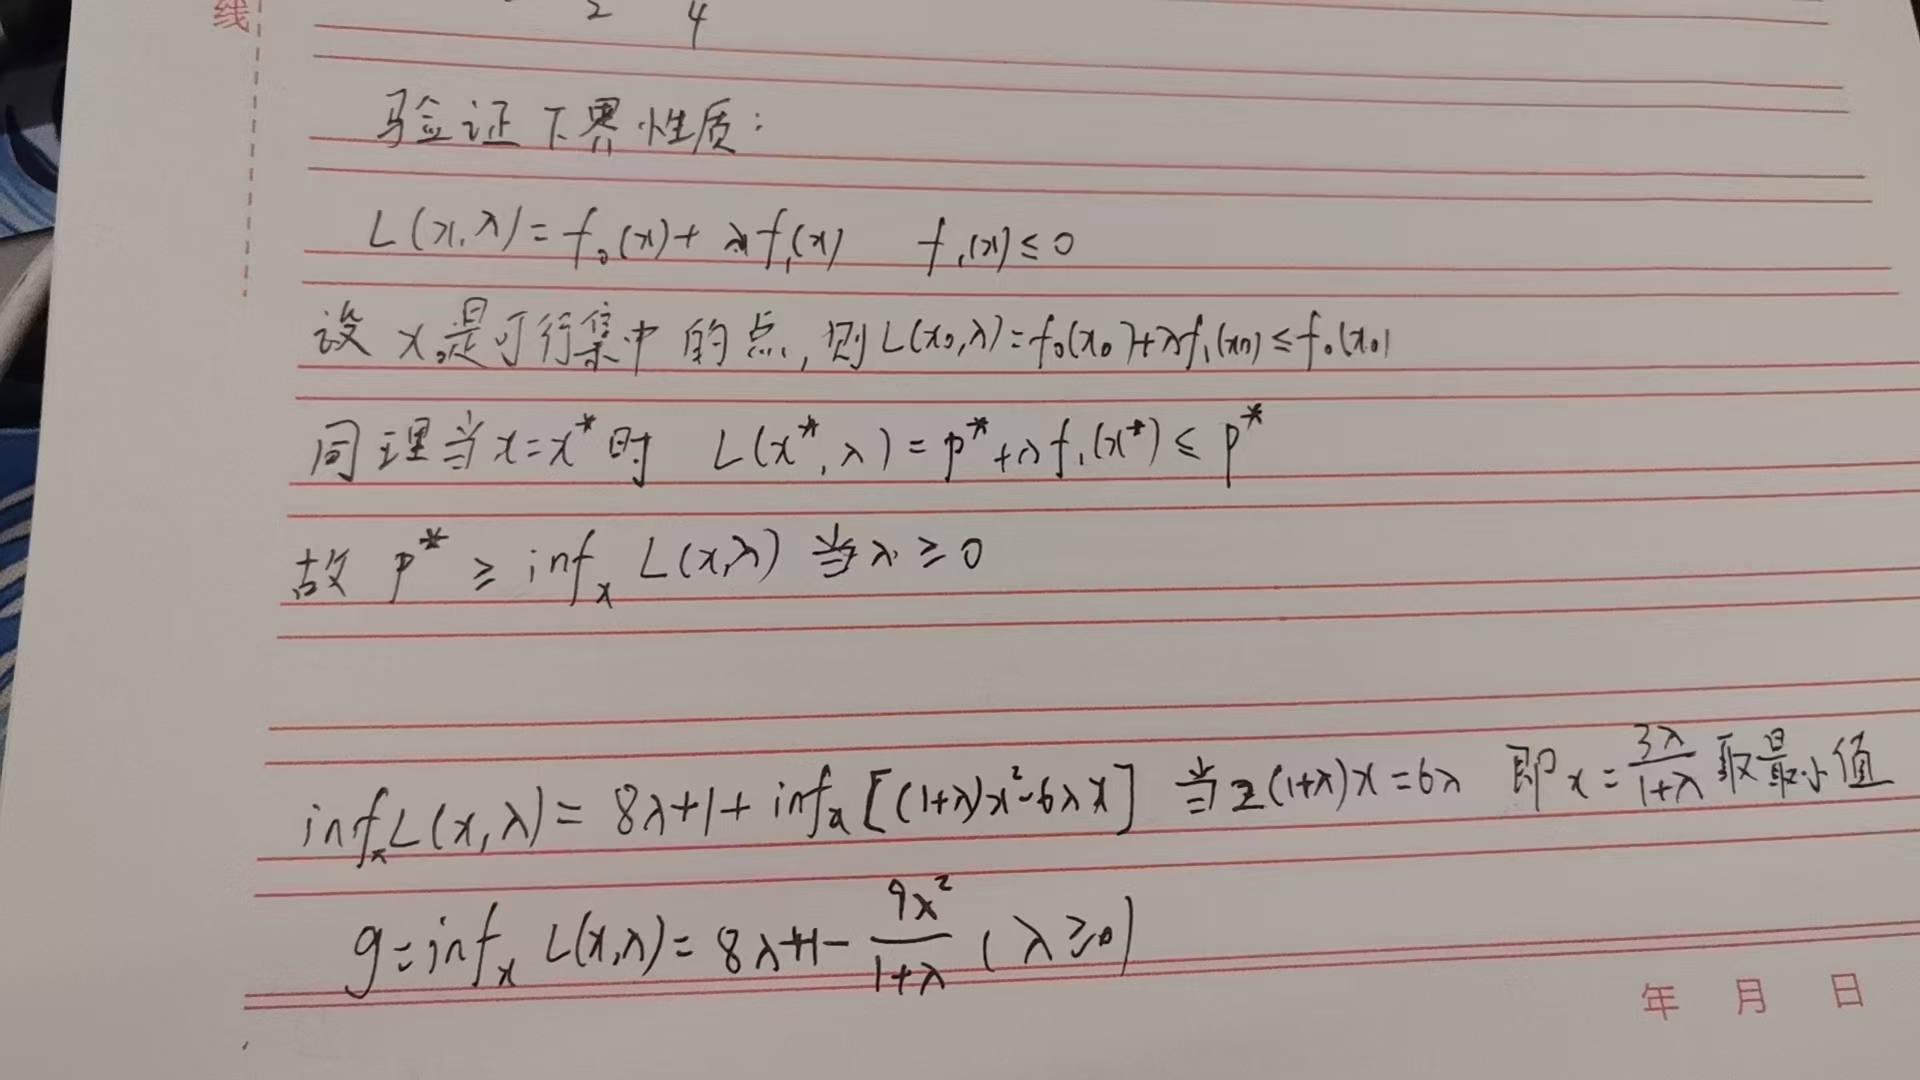 线
2 4
验证下界性质:
L(x,λ)=f₀(x)+λf₁(x) f₁(x)≤0
设x₀是可行集中的点,则L(x₀,λ)=f₀(x₀)+λf₁(x₀)≤f₀(x₀)
同理当x=x*时 L(x*,λ)=p*+λf₁(x*)≤p*
故 p*≥inf_x L(x,λ) 当λ≥0
inf_x L(x,λ)=8λ+1+inf_x[(1+λ)x²-6λx] 当2(1+λ)x=6λ 即x=3λ/(1+λ)取最小值
g=inf_x L(x,λ)=8λ+1-9x²/(1+λ) (λ≥0)
年 月 日